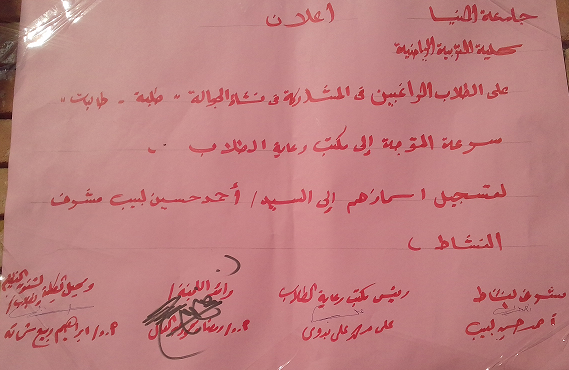 جامعة المنيا
اعلان
كلية التربية الرياضية
على الطلاب الراغبين فى المشاركة فى نشاء الجوالة - طلبة - طالبات -
سرعة التوجة إلى مكتب رعاية الطلاب .
لتسجيل اسماؤهم إلى السيد / أحمد حسين لبيب مشرف
النشاط )
مشرف النشاط
رئيس مكتب رعاية الطلاب
رائد اللجنة /
وكيل الكلية لشئون التعليم
والطلاب /
أحمد حسين لبيب
على محمد على بدوى
ا.م.د / رمضان
ا.م.د / ابراهيم ربيع شحاته